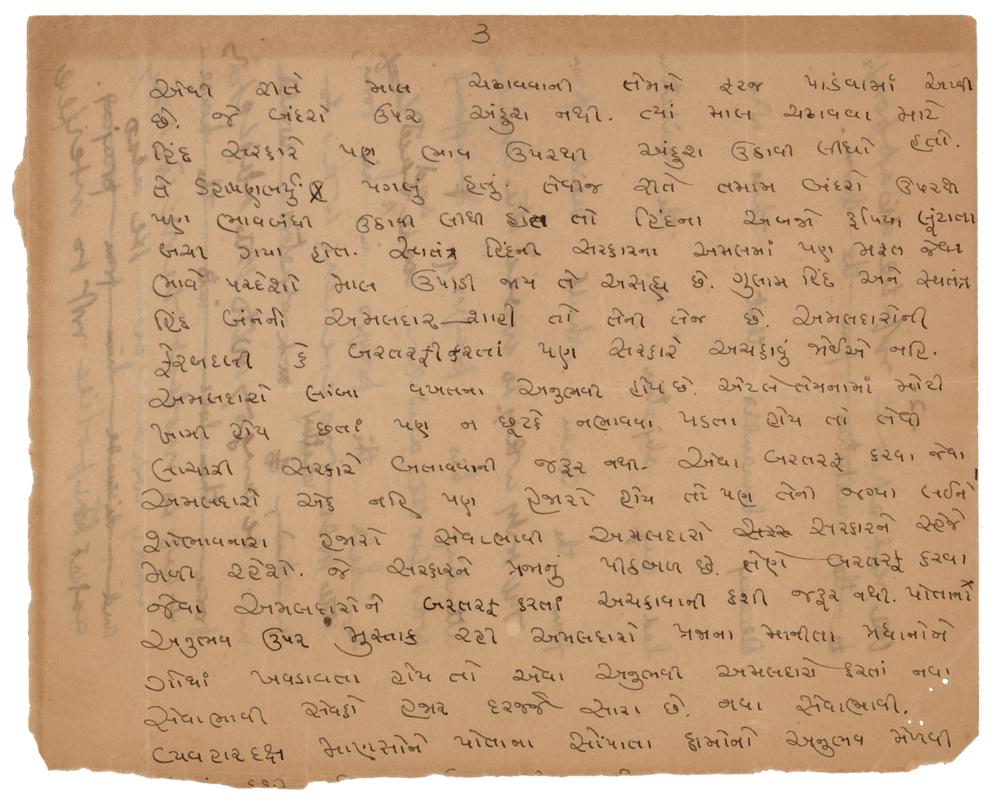 3
એવી રીતે માલ ચઢાવવાની તેમને ફરજ પાડવામાં આવી
છે. જે બંદરો ઉપર અંકુશ નથી. ત્યાં માલ ચઢાવવા માટે
હિંદ સરકારે પણ ભાવ ઉપરથી અંકુશ ઉઠાવી લીધો હતો.
તે ડહાપણભર્યું પગલું હતું. તેવીજ રીતે તમામ બંદરો ઉપરથી
પણ ભાવબંધી ઉઠાવી લીધી હોત તો હિંદના અબજો રૂપિયા લૂંટાતા
બચી ગયા હોત. સ્વતંત્ર હિંદની સરકારના અમલમાં પણ મફત જેવા
ભાવે પરદેશો માલ ઉપાડી જાય તે અસહ્ય છે. ગુલામ હિંદ અને સ્વતંત્ર
હિંદ બંનેની અમલદાર–શાહી તો તેની તેજ છે. અમલદારોની
ફેરબદલી કે બરતરફી કરતાં પણ સરકારે અચકાવું જોઈએ નહિ.
અમલદારો લાંબા વખતના અનુભવી હોય છે. એટલે તેમનામાં મોટી
ખામી હોય છતાં પણ ન છૂટકે નભાવવા પડતા હોય તો તેવી
લાચારી સરકારે બતાવવાની જરૂર નથી. એવા બરતરફ કરવા જેવા
અમલદારો એક નહિ પણ હજારો હોય તો પણ તેની જગ્યા લઈને
શોભાવનારા હજારો સેવાભાવી અમલદારો સરકારને સ્હેજે
મળી રહેશે. જે સરકારને પ્રજાનું પીઠબળ છે. તેણે બરતરફ કરવા
જેવા અમલદારોને બરતરફ કરતાં અચકાવાની કશી જરૂર નથી. પોતાનો
અનુભવ ઉપર મુસ્તાક રહી અમલદારો પ્રજાના માનીતા પ્રધાનોને
ગોથાં ખવડાવતા હોય તો એવા અનુભવી અમલદારો કરતાં નવા
સેવાભાવી સેવકો હજાર દરજ્જે સારા છે. નવા સેવાભાવી.
વ્યવહારદક્ષ માણસોને પોતાના સોંપાતા કામોનો અનુભવ મેળવી